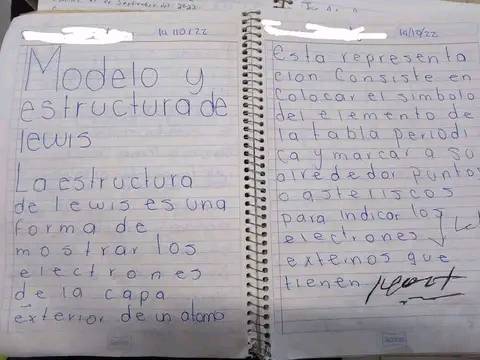 14/10/22
Modelo y
estructura de
lewis
La estructura
de lewis es una
forma de
mostrar los
electrones
de la capa
exterior de un atomo
14/10/22
Esta representa
cion consiste en
colocar el simbolo
del elemento de
la tabla periodi
ca y marcar a su
alrededor puntos
o asteriscos
para indicar los
electrones
externos que
tienen